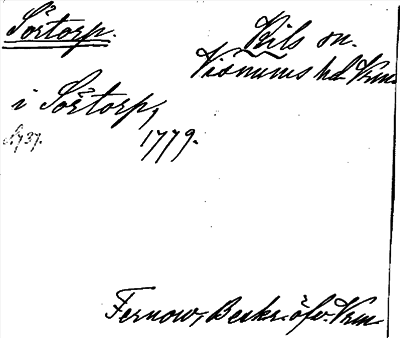 Sörtorp.
Bils sn.
Visnums hd Vrm.
i Sörtorp,
1779.
Fernow, Beskr. öfv. Vrm.